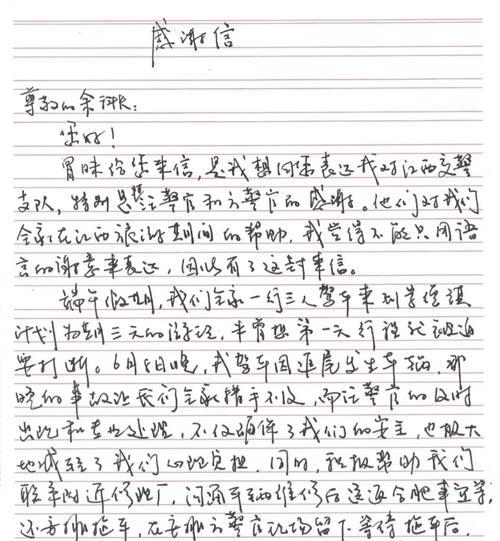 感谢信
尊敬的余
您好！
冒昧给您来信，是我想向您表达我对江西交警
支队，特别是汪警官和方警官的感谢。他们对我们
全家在江西旅游期间的帮助，我觉得不能只用语
言的谢意来表达，因此有了这封来信。
端午假期，我们全家一行三人驾车来到景德镇
计划为期三天的游程，未曾想第一天行程就被迫
要打断。6月8日晚，我驾车因追尾发生车祸，那
晚的事故让我们全家措手不及，而汪警官的及时
出现和专业处理，不仅确保了我们的安全，也极大
地减轻了我们心理负担，同时，积极帮助我们
联系附近修理厂，沟通车辆维修后送返合肥事宜等，
还安排拖车，在安排方警官现场留下等待拖车后，